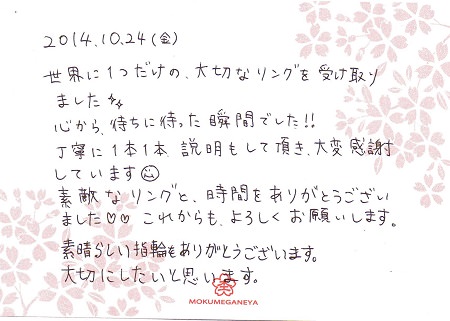 2014.10.24(金)
世界に1つだけの、大切なリングを受け取り
ました
心から、待ちに待った瞬間でした!!
丁寧に1本1本、説明もして頂き、大変感謝
しています☺
素敵なリングと、時間をありがとうござい
ました♡♡ これからも、よろしくお願いします。
素晴らしい指輪もありがとうございます。
大切にしたいと思います。
MOKUMEGANEYA